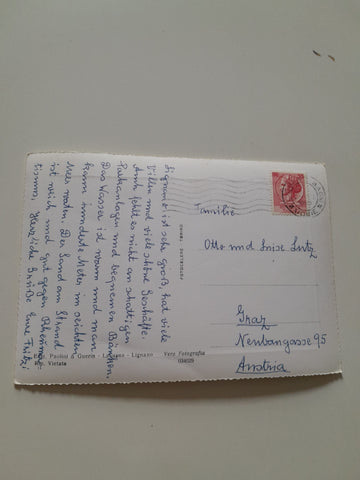 Lignano ist sehr groß, hat viele
Villen und viele schöne Geschäfte.
Auch fehlt es nicht an schattigen
Parkanlagen und bequemen Bänken.
Das Wasser ist warm und man
kann hunderte Meter im seichten
Meer waten. Der Sand am Strand
ist weich und gut gegen Rheuma=
tismus. Herzliche Grüße Eure Fritzi
Familie
Otto und Luise Lutz
Graz
Neubaugasse 95
Austria
Paolini & Guerin - Lignano Vera Fotografia
Rip. Vietata